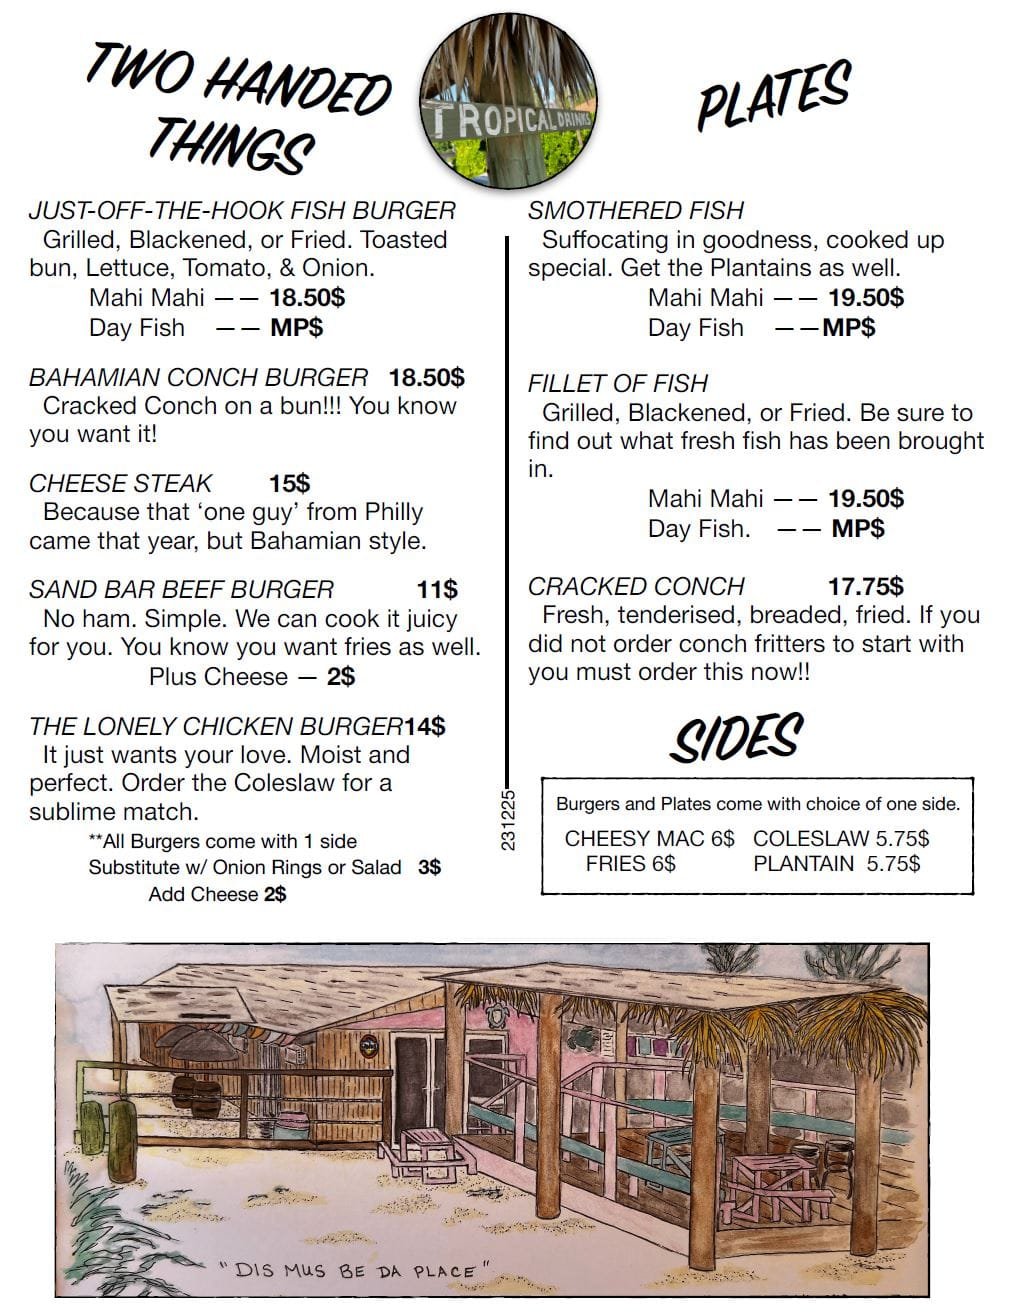 TWO HANDED
THINGS
TROPICAL DRINKS
PLATES
JUST-OFF-THE-HOOK FISH BURGER
Grilled, Blackened, or Fried. Toasted
bun, Lettuce, Tomato, & Onion.
Mahi Mahi — — 18.50$
Day Fish — — MP$
BAHAMIAN CONCH BURGER 18.50$
Cracked Conch on a bun!!! You know
you want it!
CHEESE STEAK 15$
Because that ‘one guy’ from Philly
came that year, but Bahamian style.
SAND BAR BEEF BURGER 11$
No ham. Simple. We can cook it juicy
for you. You know you want fries as well.
Plus Cheese — 2$
THE LONELY CHICKEN BURGER14$
It just wants your love. Moist and
perfect. Order the Coleslaw for a
sublime match.
**All Burgers come with 1 side
Substitute w/ Onion Rings or Salad 3$
Add Cheese 2$
231225
SMOTHERED FISH
Suffocating in goodness, cooked up
special. Get the Plantains as well.
Mahi Mahi — — 19.50$
Day Fish — —MP$
FILLET OF FISH
Grilled, Blackened, or Fried. Be sure to
find out what fresh fish has been brought
in.
Mahi Mahi — — 19.50$
Day Fish. — — MP$
CRACKED CONCH 17.75$
Fresh, tenderised, breaded, fried. If you
did not order conch fritters to start with
you must order this now!!
SIDES
Burgers and Plates come with choice of one side.
CHEESY MAC 6$ COLESLAW 5.75$
FRIES 6$ PLANTAIN 5.75$
"DIS MUS BE DA PLACE"